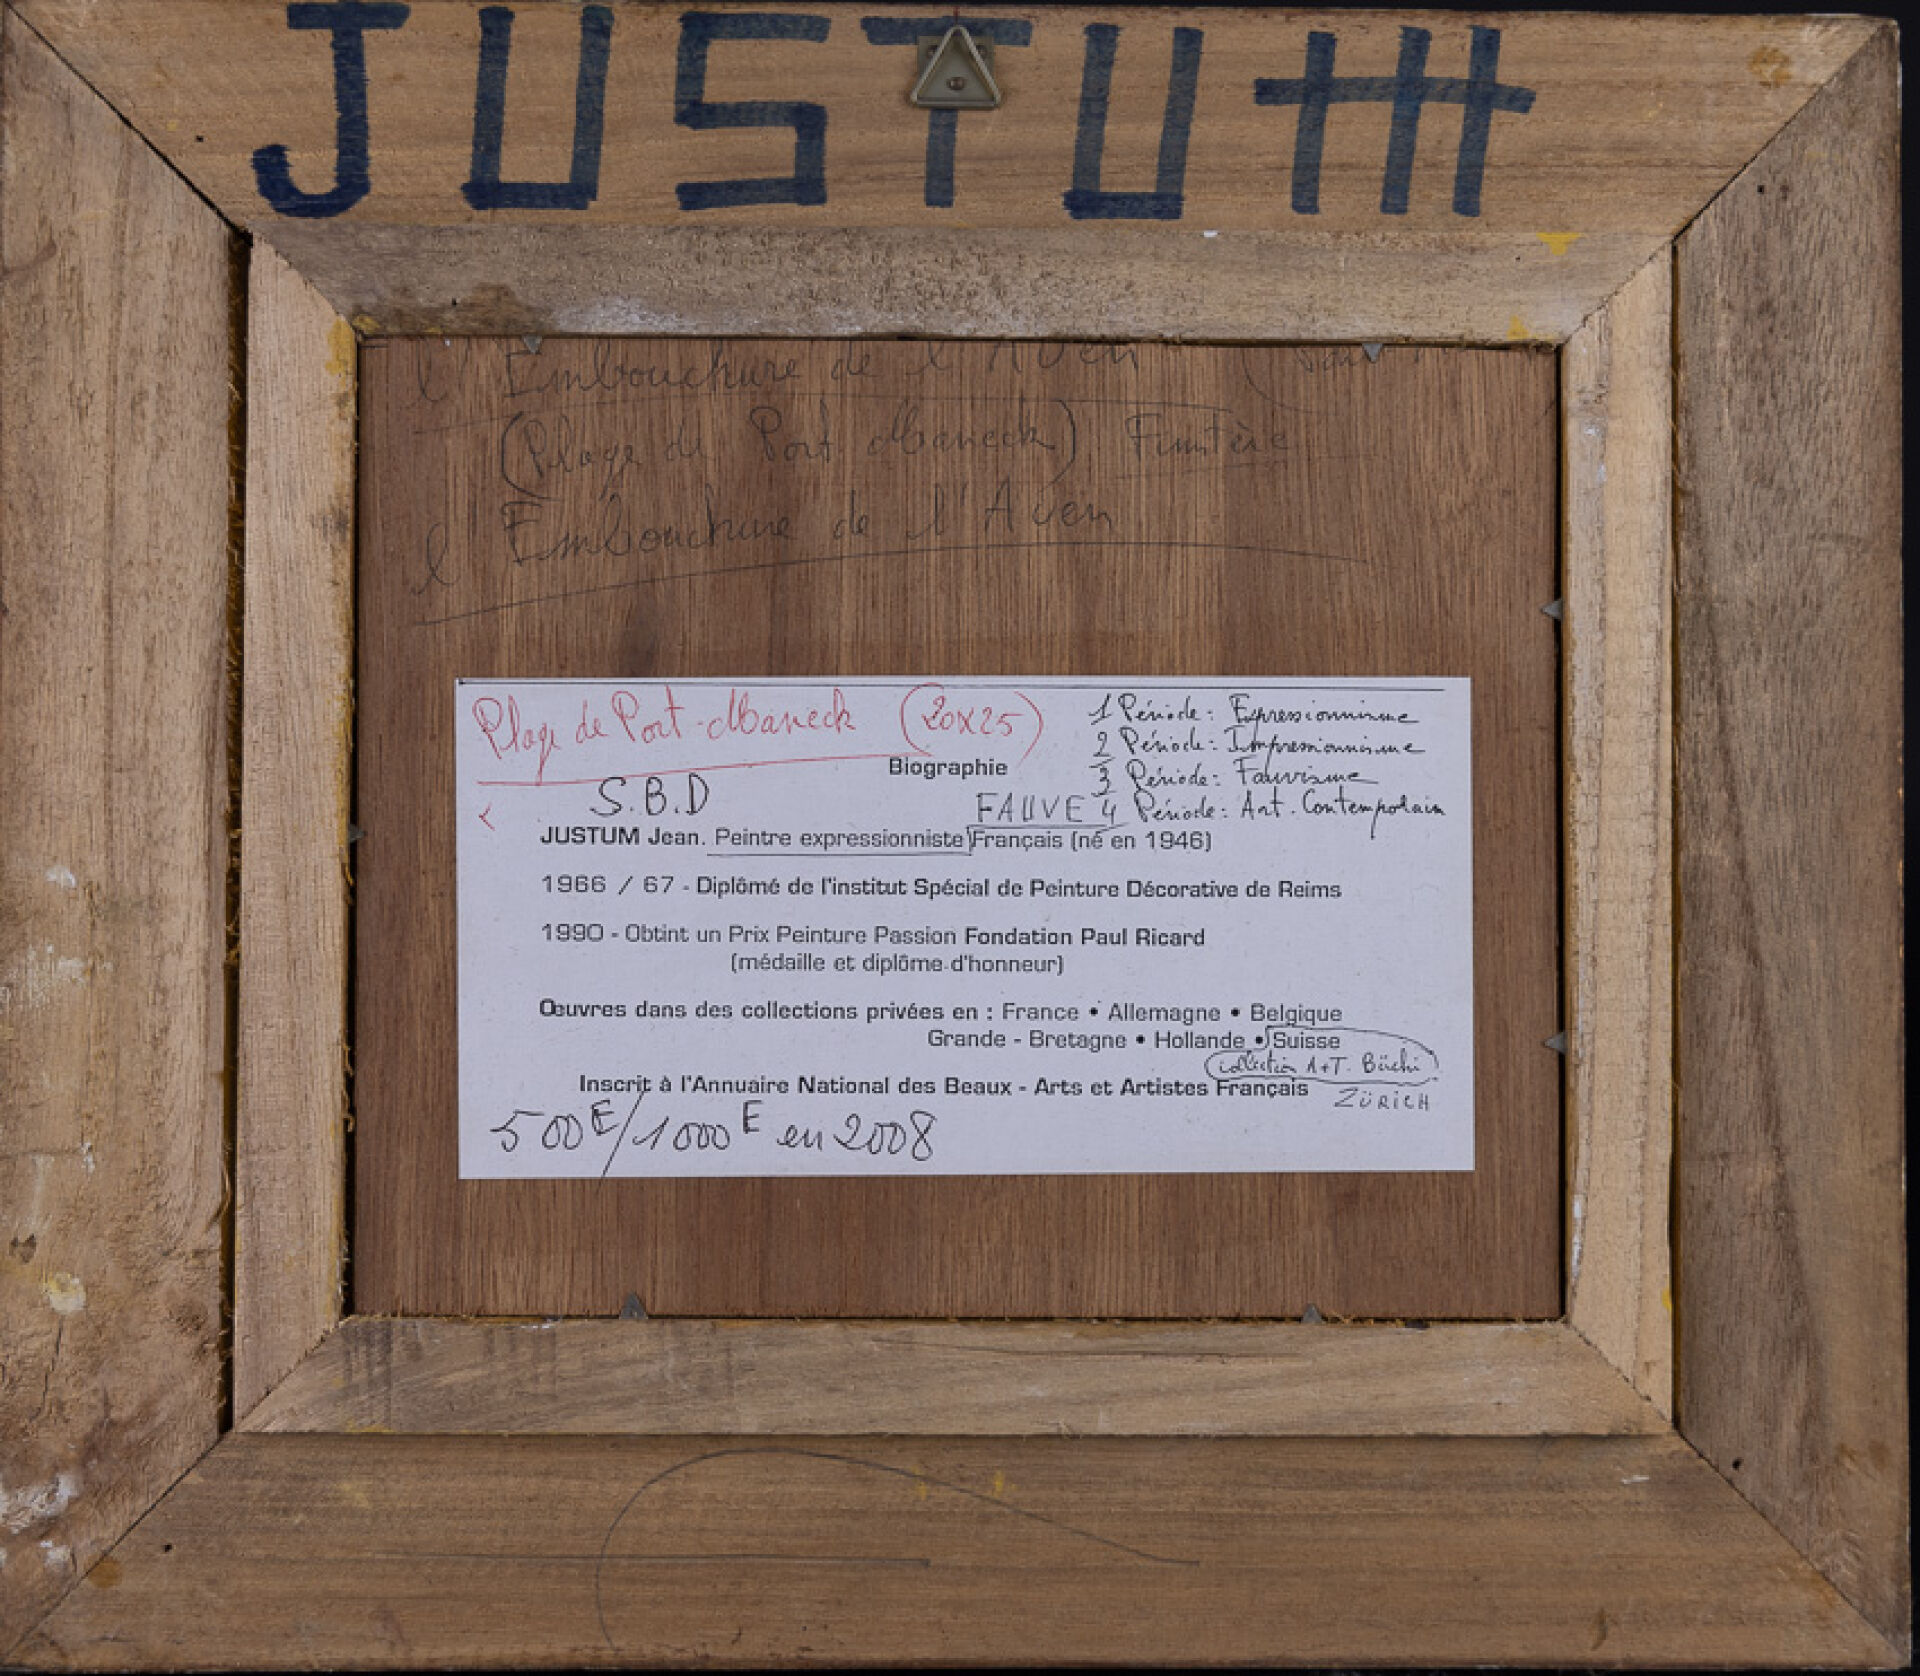 JUSTUM
l'Embouchure de l'Aven
(Plage de Port Maneck) Finistère
l'Embouchure de l'Aven
Plage de Port-Maneck (20x25)
1 Période: Expressionnisme
2 Période: Impressionnisme
3 Période: Fauvisme
4 Période: Art. Contemporain
Biographie
S.B.D
FAUVE
JUSTUM Jean. Peintre expressionniste Français (né en 1946)
1966 / 67 - Diplômé de l'institut Spécial de Peinture Décorative de Reims
1990 - Obtint un Prix Peinture Passion Fondation Paul Ricard
(médaille et diplôme d'honneur)
Œuvres dans des collections privées en : France • Allemagne • Belgique
Grande - Bretagne • Hollande • Suisse
collection A+T. Büchi
Inscrit à l'Annuaire National des Beaux - Arts et Artistes Français
ZÜRICH
500E/1000E en 2008